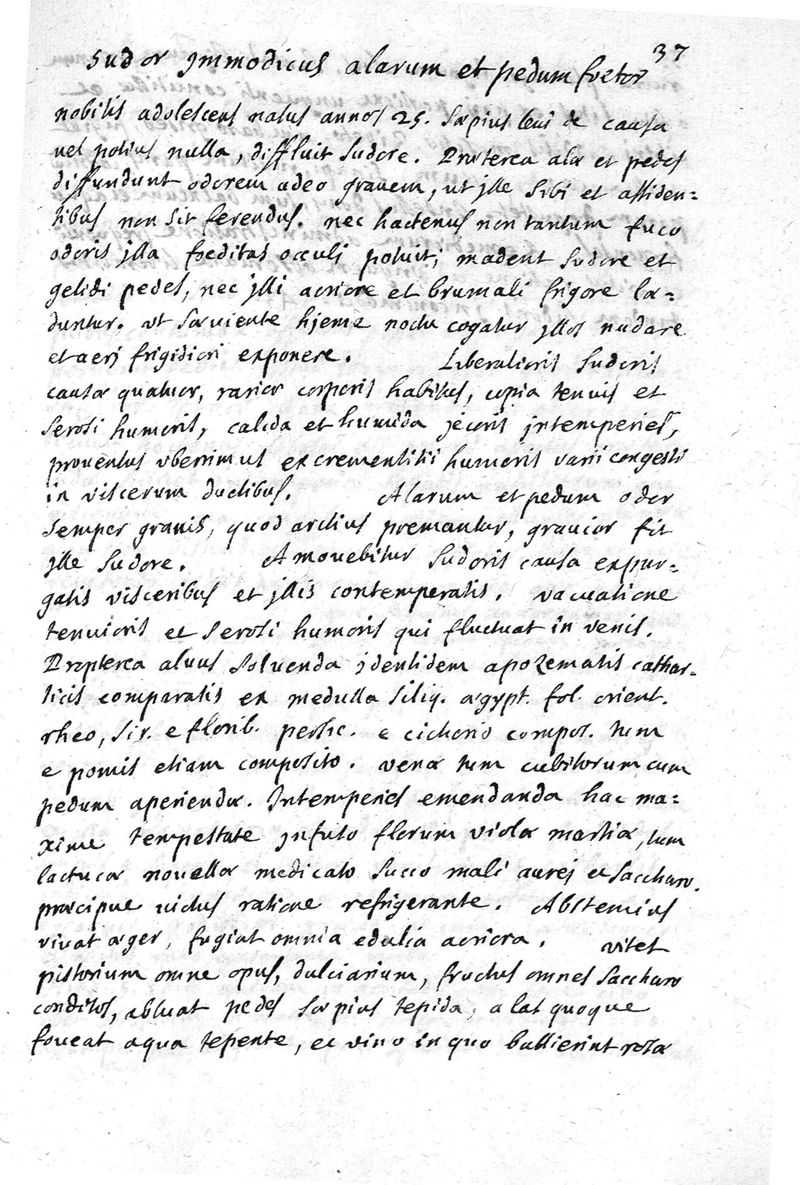 37
Sudor jmmodicus alarum et pedum foetor
nobilis adolescens natus annos 25. saepius leui de causa
uel potius nulla, diffluit sudore. Praeterea alae et pedes
diffundunt odorem adeo grauem, ut jlle sibi et assiden=
tibus non sit ferendus. nec hactenus non tantum fuco
odoris jlla foeditas occuli potuit; madent sudore et
gelidi pedes, nec jlli acriore et brumali frigore lae=
duntur. ut saeuiente hjeme noctu cogatur jllos nudare
et aerj frigidiori exponere. Liberalioris sudoris
causae quatuor, rarior corporis habitus, copia tenuis et
serosi humoris, calida et humida jecoris jntemperies,
prouentus vberrimus excrementitii humoris varii congesti
in viscerum ductibus. Alarum et pedum odor
semper grauis, quod arctius premantur, grauior fit
jlle sudore. Amouebitur sudoris causa expur=
gatis visceribus et jllis contemperatis. vacuatione
tenuioris et serosi humoris qui fluctuat in venis.
Propterea aluus soluenda jdentidem apozematis cathar=
ticis comparatis ex medulla siliq. aegypt. fol. orient.
rheo, sir. e florib. persic. e cichorio compos. tum
e pomis etiam composito. venae tum cubitorum cum
pedum aperiendae. Intemperies emendanda hac ma=
xime tempestate jnfuso florum violae martiae, tum
lactucae nouellae medicato succo mali aurej et saccharo.
praecipue uictus ratione refrigerante. Abstemius
viuat aeger, fugiat omnia edulia acriora. vitet
pistorium omne opus, dulciarium, fructus omnes saccharo
conditos, abluat pedes saepius tepida, alas quoque
foueat aqua tepente, et vino in quo bullierint rosae